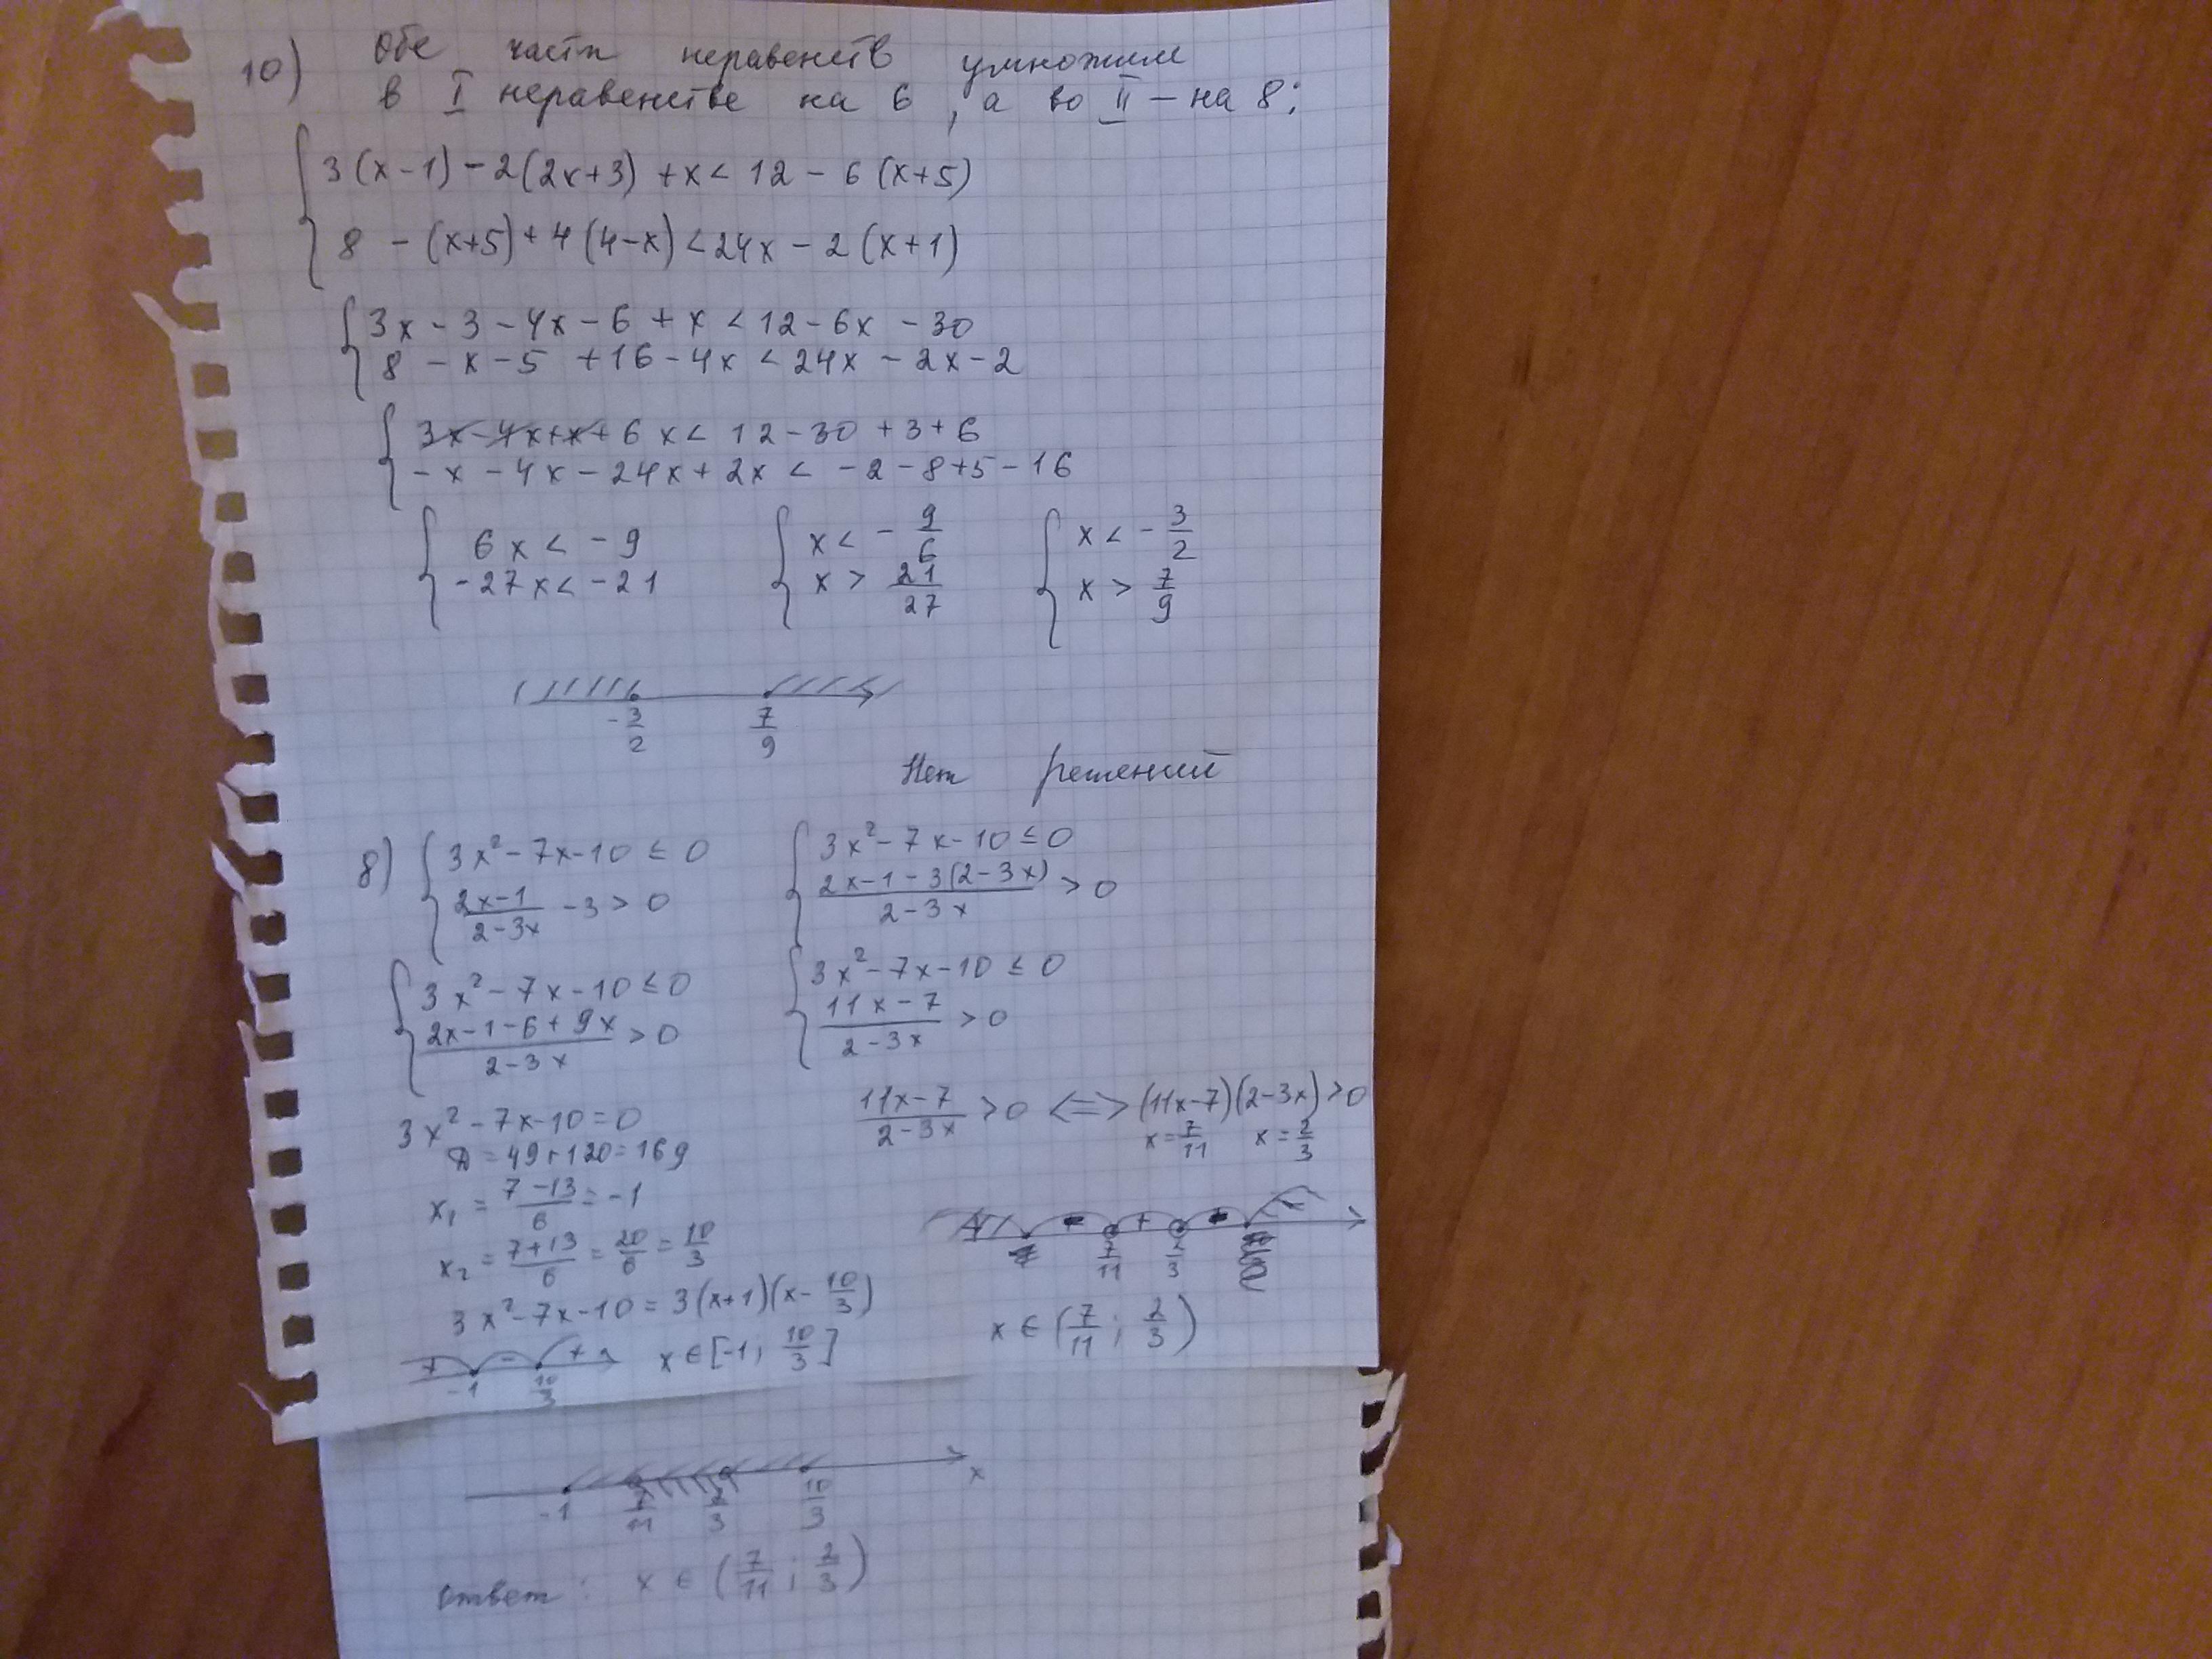 10) Обе части неравенств умножим
в I неравенстве на 6, а во II – на 8:
3(x-1) - 2(2x+3) + x < 12 - 6(x+5)
8 - (x+5) + 4(4-x) < 24x - 2(x+1)
3x - 3 - 4x - 6 + x < 12 - 6x - 30
8 - x - 5 + 16 - 4x < 24x - 2x - 2
3x - 4x + x + 6x < 12 - 30 + 3 + 6
-x - 4x - 24x + 2x < -2 - 8 + 5 - 16
6x < -9
-27x < -21
x < -9/6
x > 21/27
x < -3/2
x > 7/9
-3/2 7/9
Нет решений
8) 3x² - 7x - 10 ≤ 0
(2x-1)/(2-3x) - 3 > 0
3x² - 7x - 10 ≤ 0
(2x-1-3(2-3x))/(2-3x) > 0
3x² - 7x - 10 ≤ 0
(2x-1-6+9x)/(2-3x) > 0
3x² - 7x - 10 ≤ 0
(11x-7)/(2-3x) > 0
3x² - 7x - 10 = 0
D = 49 + 120 = 169
x₁ = (7-13)/6 = -1
x₂ = (7+13)/6 = 20/6 = 10/3
3x² - 7x - 10 = 3(x+1)(x - 10/3)
+ - +
-1 10/3
x ∈ [-1; 10/3]
(11x-7)/(2-3x) > 0 <=> (11x-7)(2-3x) > 0
x = 7/11 x = 2/3
- +
7/11 2/3
x ∈ (7/11; 2/3)
-1 7/11 2/3 10/3 x
Ответ: x ∈ (7/11; 2/3)